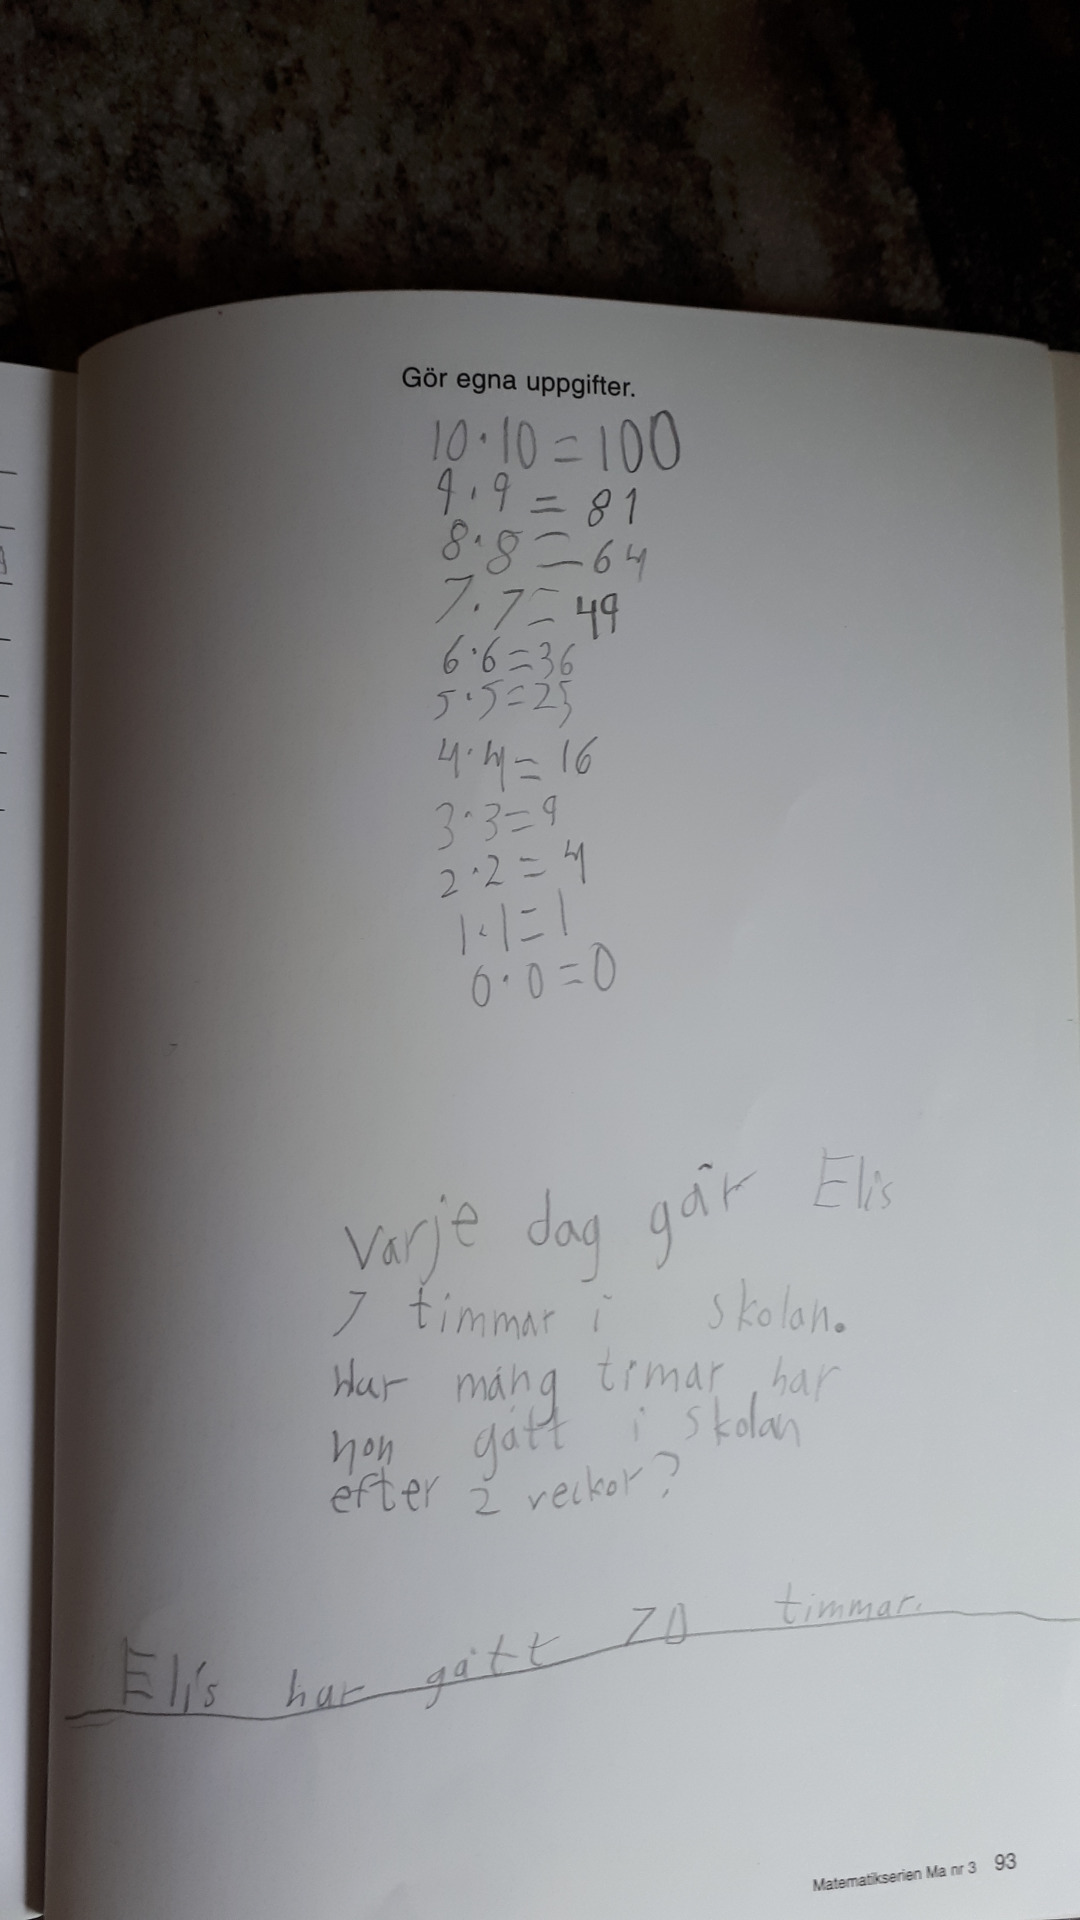 Gör egna uppgifter.
10·10=100
9·9=81
8·8=64
7·7=49
6·6=36
5·5=25
4·4=16
3·3=9
2·2=4
1·1=1
0·0=0
Varje dag går Elis
7 timmar i skolan.
Hur mång timar har
hon gått i skolan
efter 2 veckor?
Elis har gått 70 timmar.
Matematikserien Ma nr 3 93